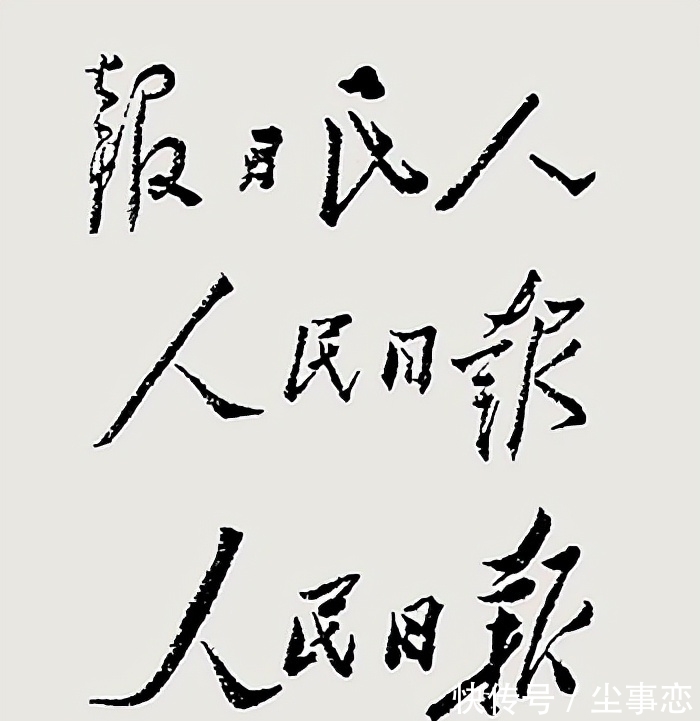 人民日報
人民日報
人民日報
快传号 / 尘事恋